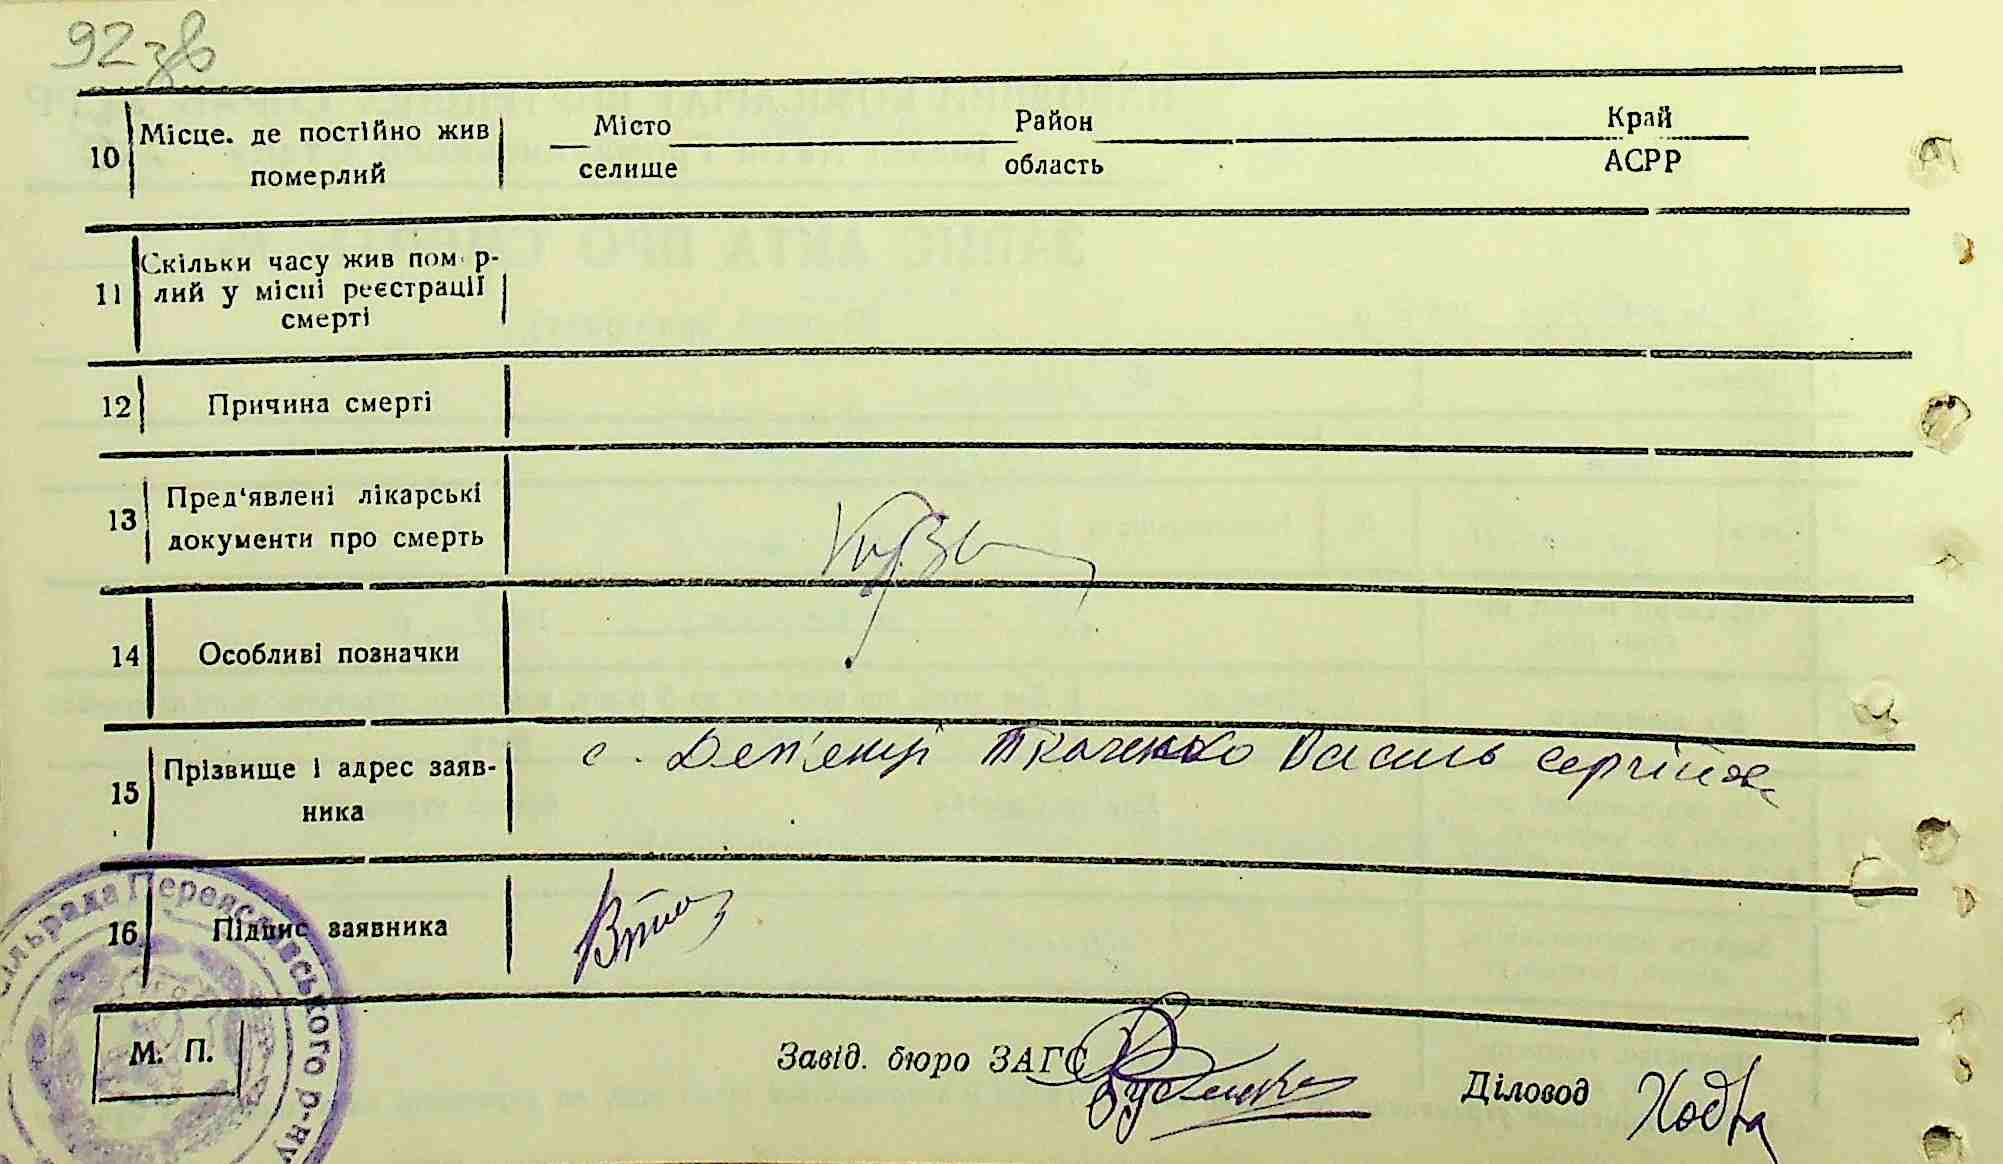 92 зв
10 Місце. де постійно жив померлий
Місто Район Край
селище область АСРР
11 Скільки часу жив пом р-
лий у місці реєстрації
смерті
12 Причина смерті
13 Пред'явлені лікарські
документи про смерть
14 Особливі позначки
15 Прізвище і адрес заяв-
ника
с. Дем'янці Ткаченко Василь Сергійов
16 Підпис заявника
сільрада Переяславського р-ну
М. П.
Завід. бюро ЗАГС
Діловод